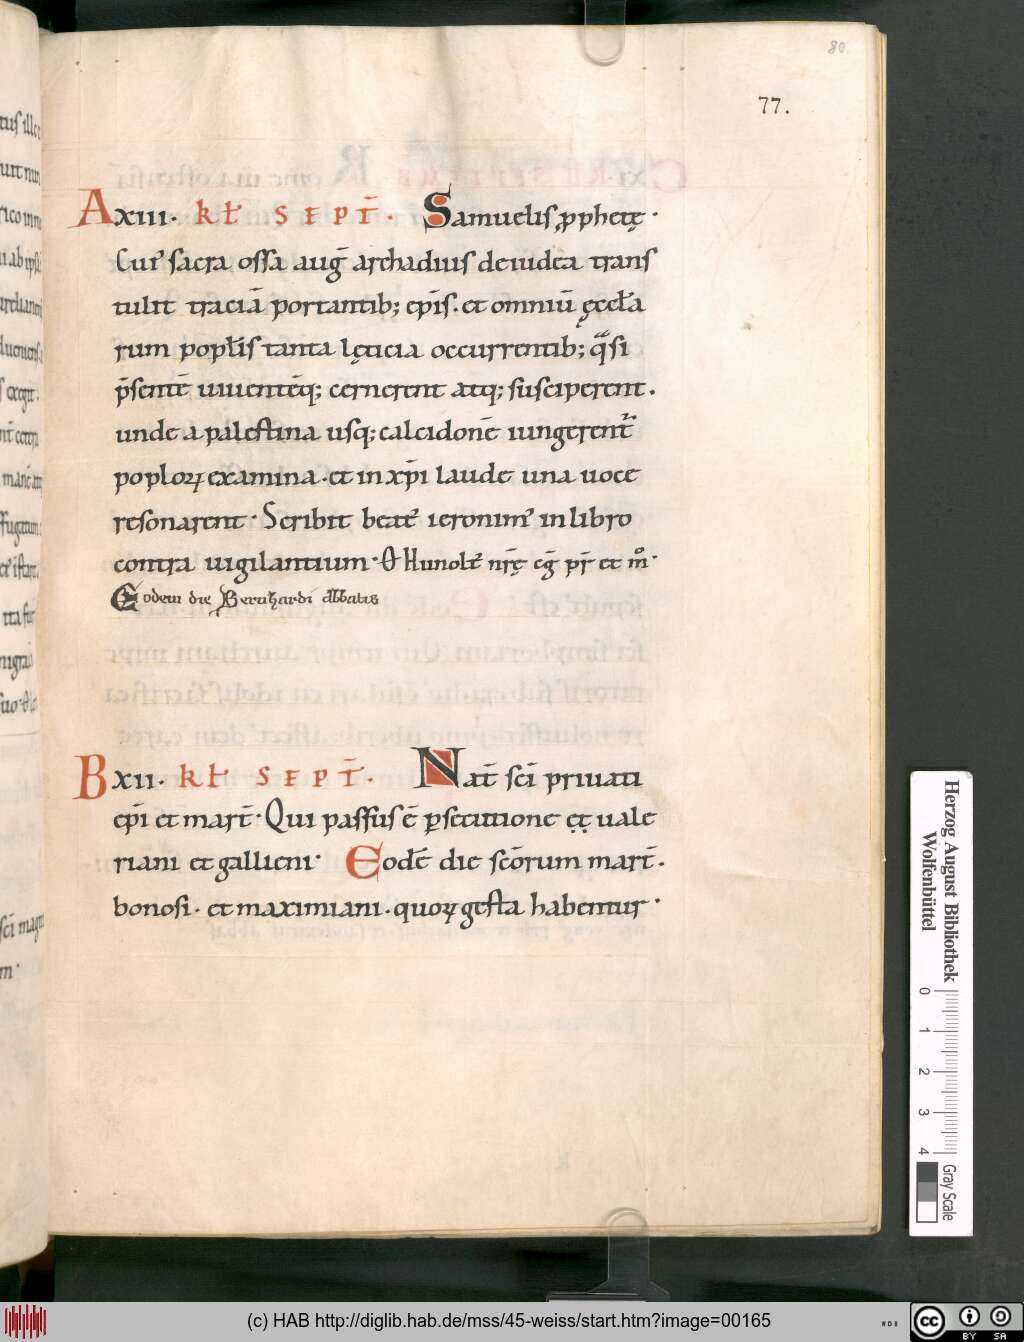 80
77.
A xiii. kł SEPT̄. Samuelis ꝓphetę.
Cuiꝰ sacra ossa aug̅ archadius deiudea trans
tulit traciā portantib; ep̄is. et omniū ęccl̄a
rum popl̄is tanta lęticia occurrentib; q̄si
p̄sentē uiuentēq; cernerent atq; susciperent.
unde a palestina usq; calcidonē iungerent̄
poploꝝ examina. et in xp̄i laude una uoce
resonarent. Scribit beatꝰ ieronimꝰ in libro
contra uigilantium. Hunolt̄ nr̄ę cg̅ pr̄ et m̊.
Eodem die Bernhardi abbatis
B xii. kł SEPT̄. Nat̄ sc̄i priuati
ep̄i et mart̄. Qui passus ē ꝑsecutione ęt uale
riani et gallieni. Eodē die sc̄orum mart̄.
bonosi. et maximiani. quoꝝ gesta habentur.
Herzog August Bibliothek
Wolfenbüttel
0 1 2 3 4
Gray Scale
(c) HAB http://diglib.hab.de/mss/45-weiss/start.htm?image=00165
cc BY SA